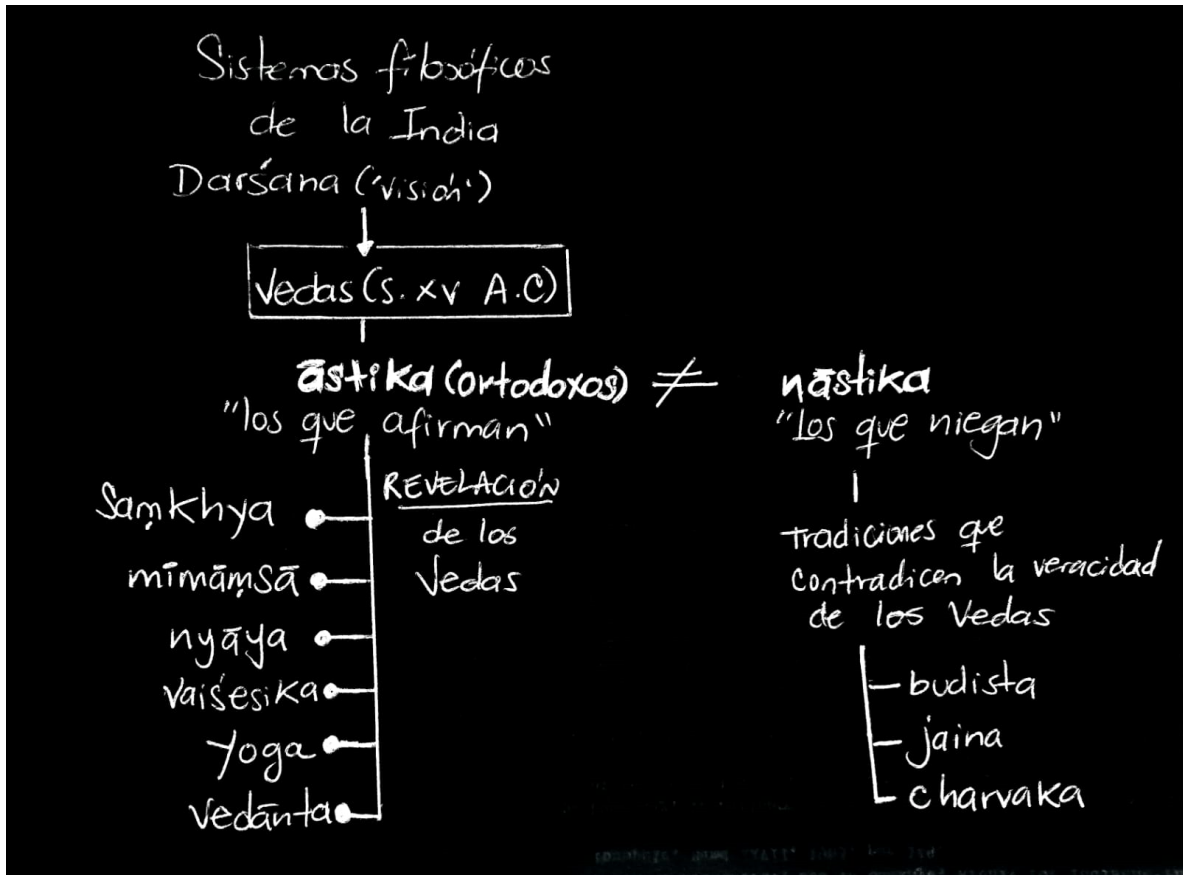 Sistemas filosóficos
de la India
Darśana ('visión')
Vedas (s. XV A.C)
āstika (ortodoxos) ≠ nāstika
"los que afirman"
"Los que niegan"
REVELACIÓN
de los
Vedas
Saṃkhya
mīmāṃsā
nyāya
vaiśesika
yoga
vedānta
tradiciones que
contradicen la veracidad
de los Vedas
budista
jaina
charvaka